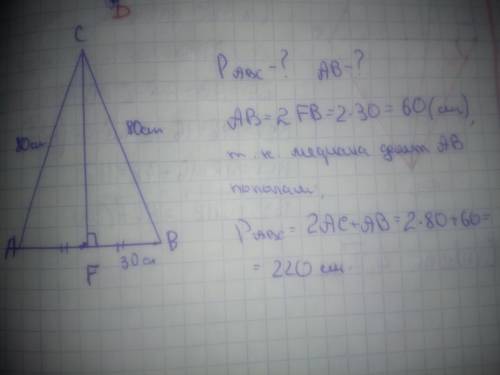 D
C
P ABC - ? AB - ?
80см 80см
AB = 2FB = 2·30 = 60 (см),
т. к. медиана делит AB
пополам.
P ABC = 2AC + AB = 2·80 + 60 =
= 220 см.
A B
F 30 см